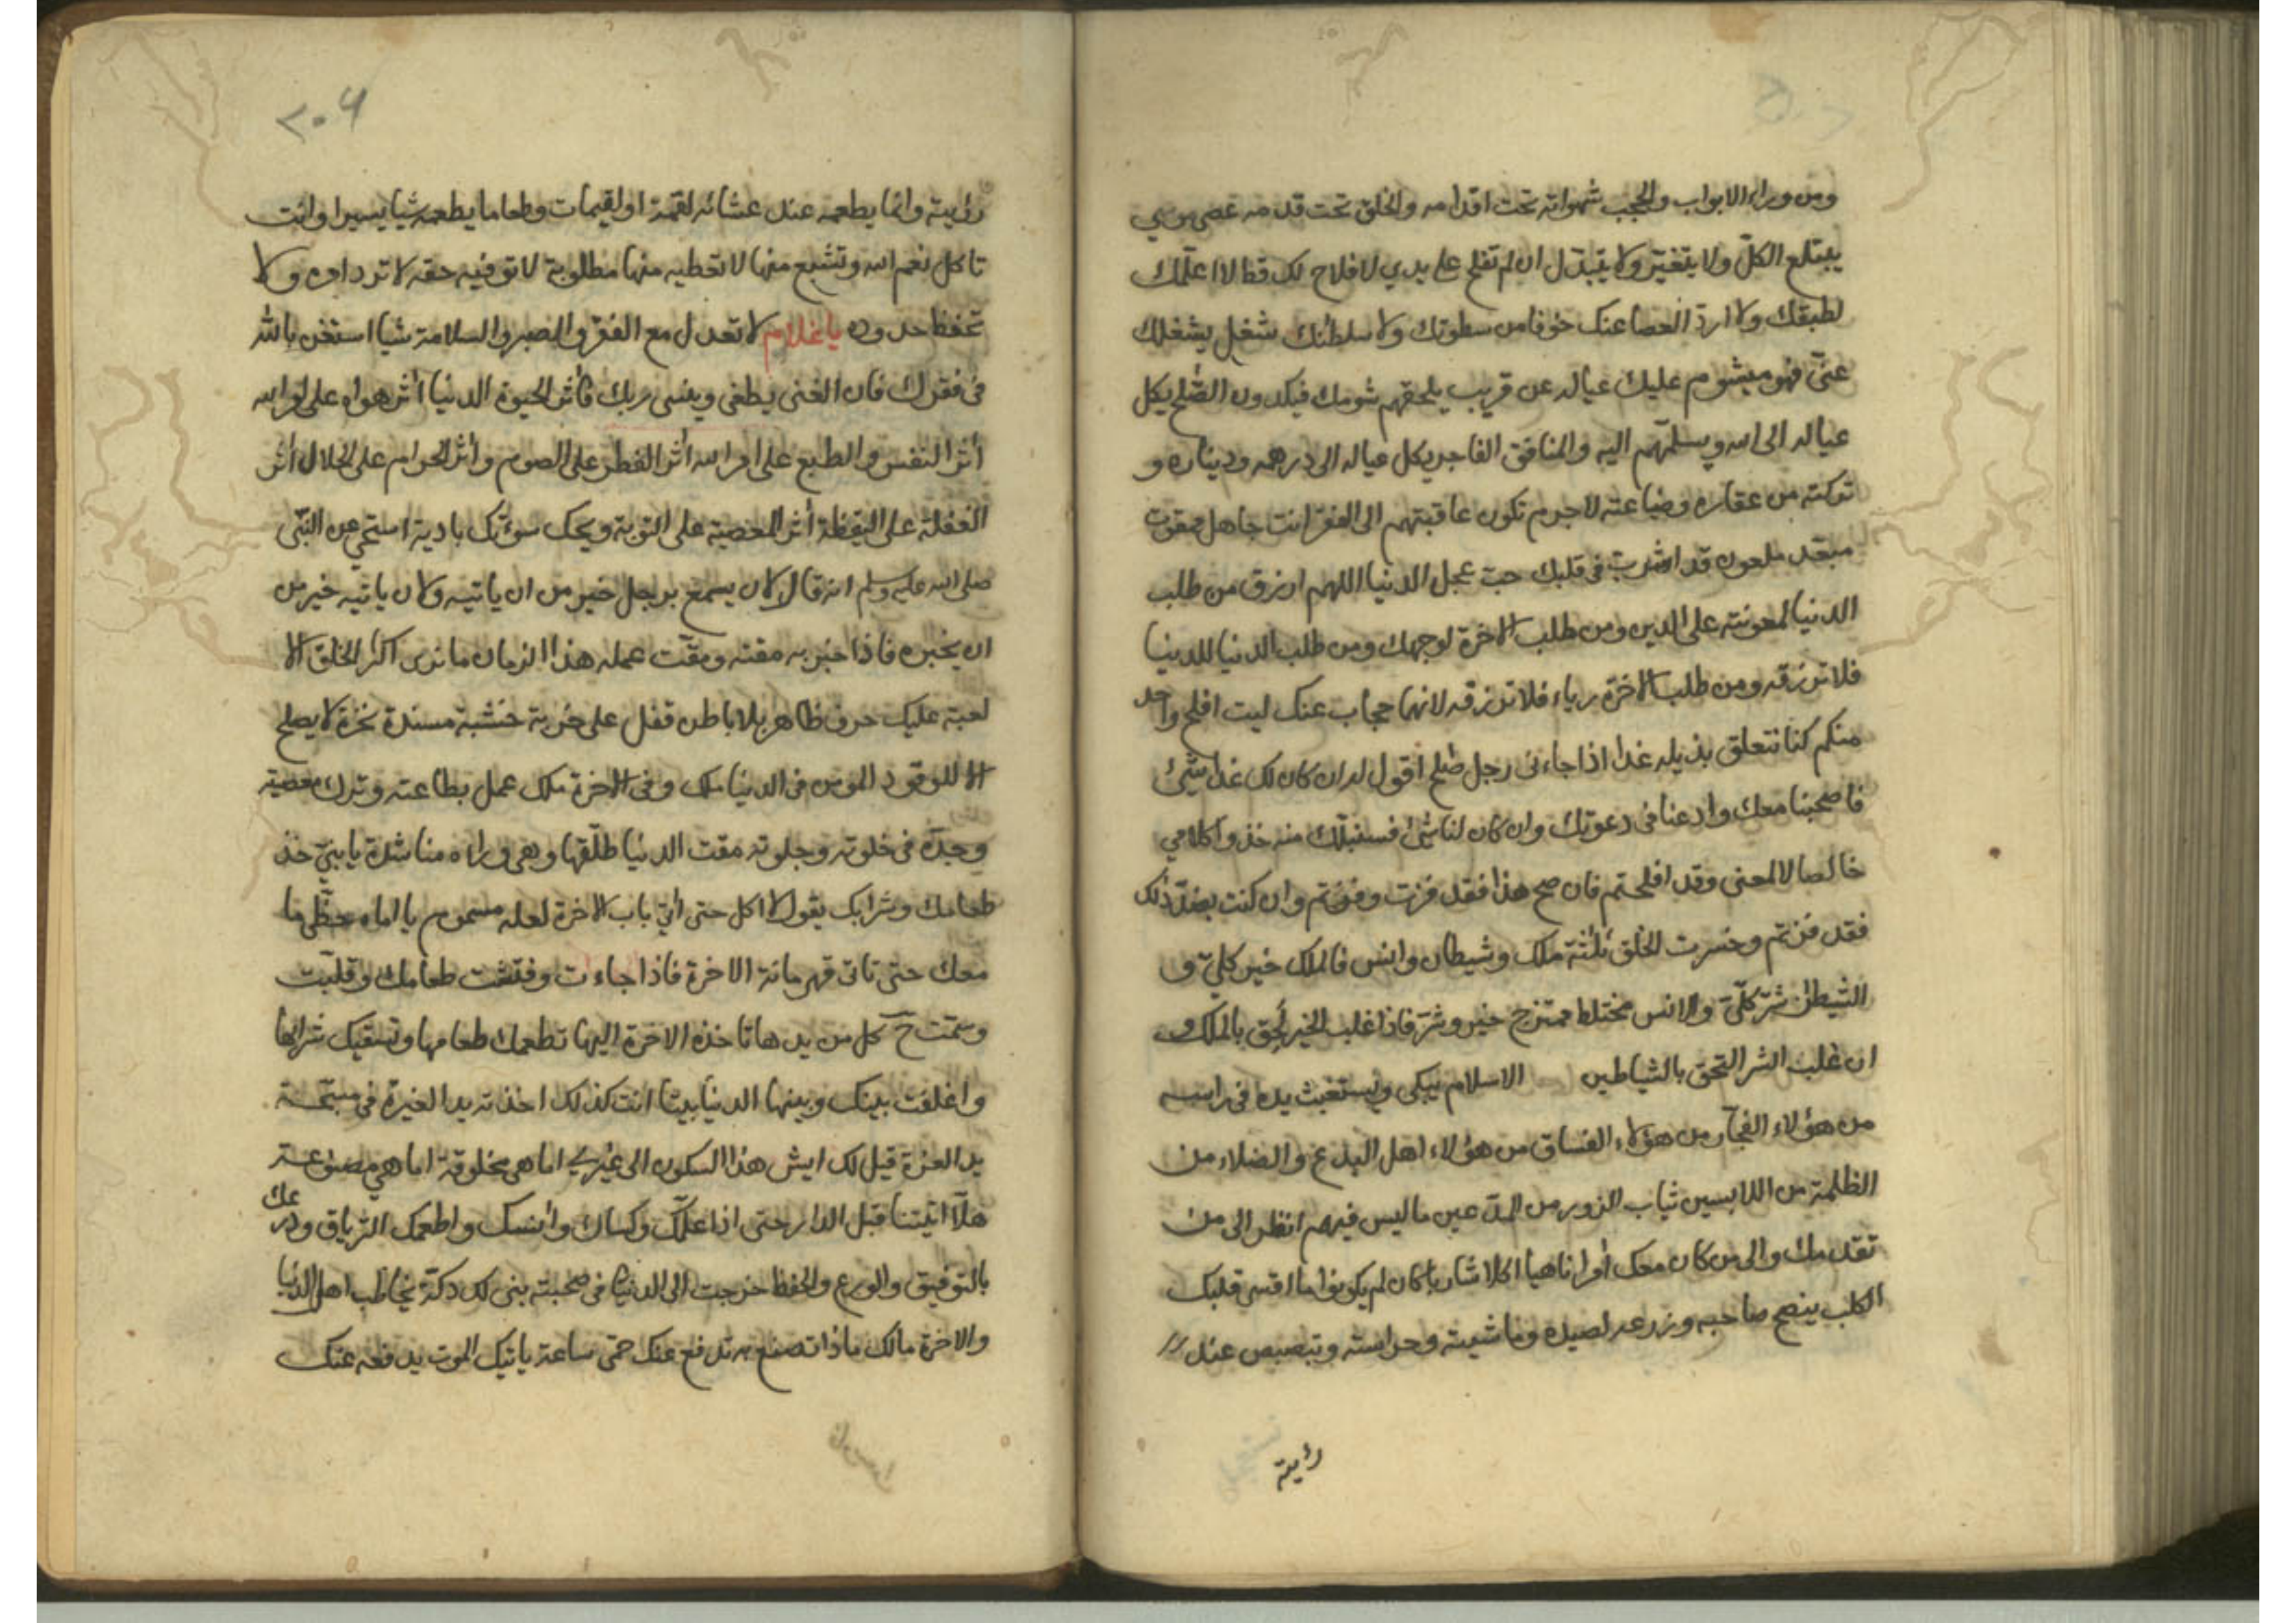 ومن وراء الابواب والحجب شهواته تحت اقدامه والخلق تحت قدمه عصى موسي
يبتلع الكلّ ولا يتغيّر ولا يتبدّل ان لم تفلح على يدي لا فلاح لك قط لا اعلّمك
لطبقك ولا اردّ العصا عنك خوفا من سطوتك ولا سلطنك شغل يشغلك
عنّى فهو ميشوم عليك عيالہ عن قريب يلحقهم شومك فيكدون الصّلح يكل
عيالہ الى الله ويسلمهم اليه والمنافق الفاجر يكل عيالہ الى درهمه وديناره و
تركته من عقاره وضياعته لاجرم تكون عاقبتهم الى الفقر انت جاهل ممقوت
مبعّد ملعون قد اشرب فى قلبك حبّ عجل الدنيا اللهم ارزق من طلب
الدنيا لمعونته على الدين ومن طلب الاخرة لوجهك ومن طلب الدنيا للدينيا
فلا ترزقه ومن طلب الاخرة رياء فلا ترزقه لانهما حجاب عنك ليت افلح واحد
منكم كنا نتعلق بذيله غدا اذا جاءنى رجل صلح اقول لہ ان كان لك غدا شئ
فاصحبنا معك وادعنا فى دعوتك وان كان لنا شئ فسنبلّك منه خذوا كلامي
خالصا لا لمعنى وقد افلحتم فان صح هذا فقد فزت وفزتم وان كنت بضدّ ذلك
فقد فزتم وخسرت الخلق ثلثة ملك وشيطان وانس فالملك خير كلّى و
الشيطن شرّ كلّى والانس مختلط ممتزج خير وشرّ فاذا غلب الخير لحق بالملك و
ان غلب الشر التحق بالشياطين الاسلام يبكى ويستغيث يده فى راسه
من هؤلاء الفجّار من هؤلاء الفساق من هؤلاء اهل البدع والضلاء من
الظلمة من اللابسين ثياب الزور من المدّعين ما ليس فيهم انظر الى من
تقدمك والى من كان معك أمرا ناهيا اكلا شاربا كان لم يكونوا ما اقسى قلبك
الكلب ينصح صاحبه وزرعہ لصيده وماشيته وحراسته وتبصبص عند
رؤيته
٢٠٤
رؤيته وانما يطعمه عند عشائه لقمة او لقيمات وطعاما يطعمه شيا يسيرا وانت
تاكل نعم الله وتشبع منها لا تعطيه منها مطلوبة لا توفيه حقه لا ترد امره ولا
تحفظ حدوده يا غلام لا تعدل مع الفقر والصبر والسلامة شيا استغن بالله
فى فقرك فان الغنى يطغى وينسى ربك فأثر الحيوة الدنيا أثر هواه على امر الله
أثر النفس والطبع على امر الله أثر الفطر على الصوم وأثر الحرام على الحلال أثر
الغفلة على اليقظة أثر المعصية على التوبة ويحك سوءتك بادية استحي من النبّى
صلى الله عليه وسلم انه قال لان يسمع برجل خير من ان ياتيه ولان ياتيه خير من
ان يخبره فاذا خبر به مقته ومقّت عمله هذا الزمان ما نرى اكثر الخلق الا
لعبة عليك حرف ظاهر بلا باطن قفل على خربة خشبة مسندة نخرة لا يصلح
الا للوقود المومن فى الدنيا ملك وفى الاخرة ملك عمل بطاعته وترك معصيته
وحدّه فى خلوته وجلوته مقت الدنيا طلّقها وهى وراه مناشدة يا بنيّ خذ
طعامك وشرابك يقول لا اكل حتى أتي باب الاخرة لعله مسموم يا اماه حظّى ما
معك حتى تاتى قهرمانة الاخرة فاذا جاءت وفتشت طعامك وقلبّت
وسمّت ح كل من يدها تاخذه الاخرة اليها تطعمك طعامها وتسقيك شرابها
واغلقت بينك وبينها الدنيا بيتا انت كذلك اخذته يد الغيرة
يد العزة قيل لك ايش هذا السكون الى غيري اما هى مخلوقة اما هي مصنوعة
هلّا اتيتنا قبل الدار حتى اذا علّمك وكساك وأنسك واطعمك الترياق ودرعك
بالتوفيق والورع والحفظ خرجت الى الدنيا فى صحبته بنى لك دكّة يخاطب اهل الدنيا
والاخرة مالك ماذا تصنع به تدفع عنك حمّى ساعة ياتيك الموت يدفعه عنك